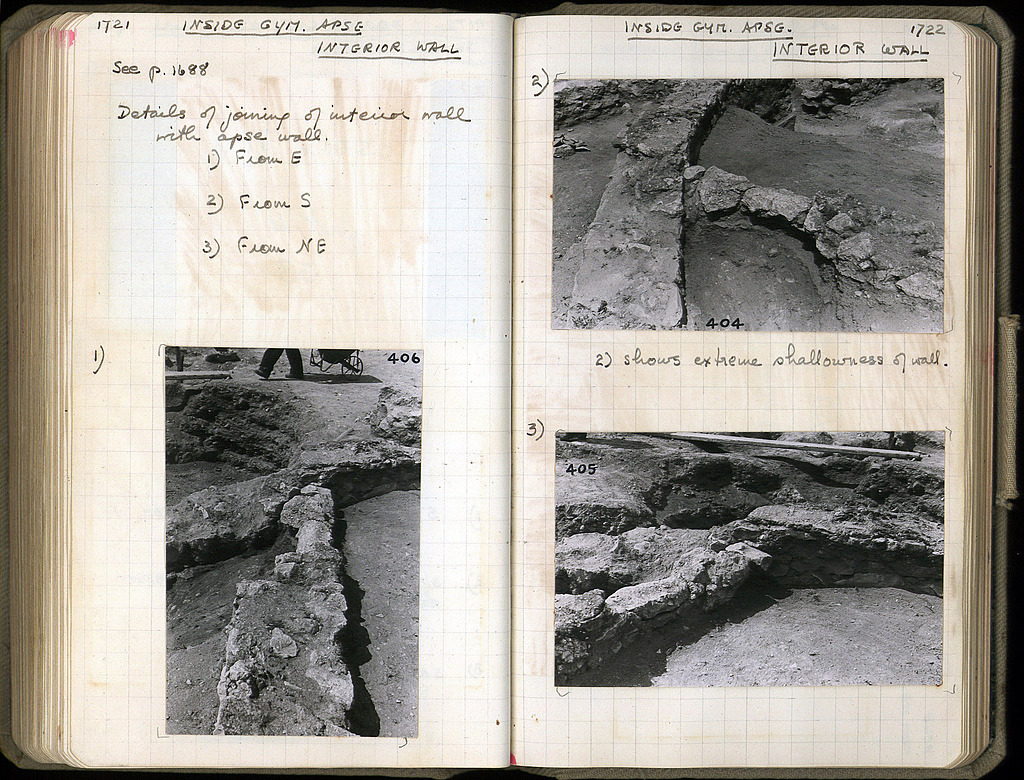 1721 INSIDE GYM. APSE
INTERIOR WALL
See p. 1688
Details of joining of interior wall
with apse wall.
1) From E
2) From S
3) From NE
1)
406
INSIDE GYM. APSE. 1722
INTERIOR WALL
2)
404
2) shows extreme shallowness of wall.
3)
405